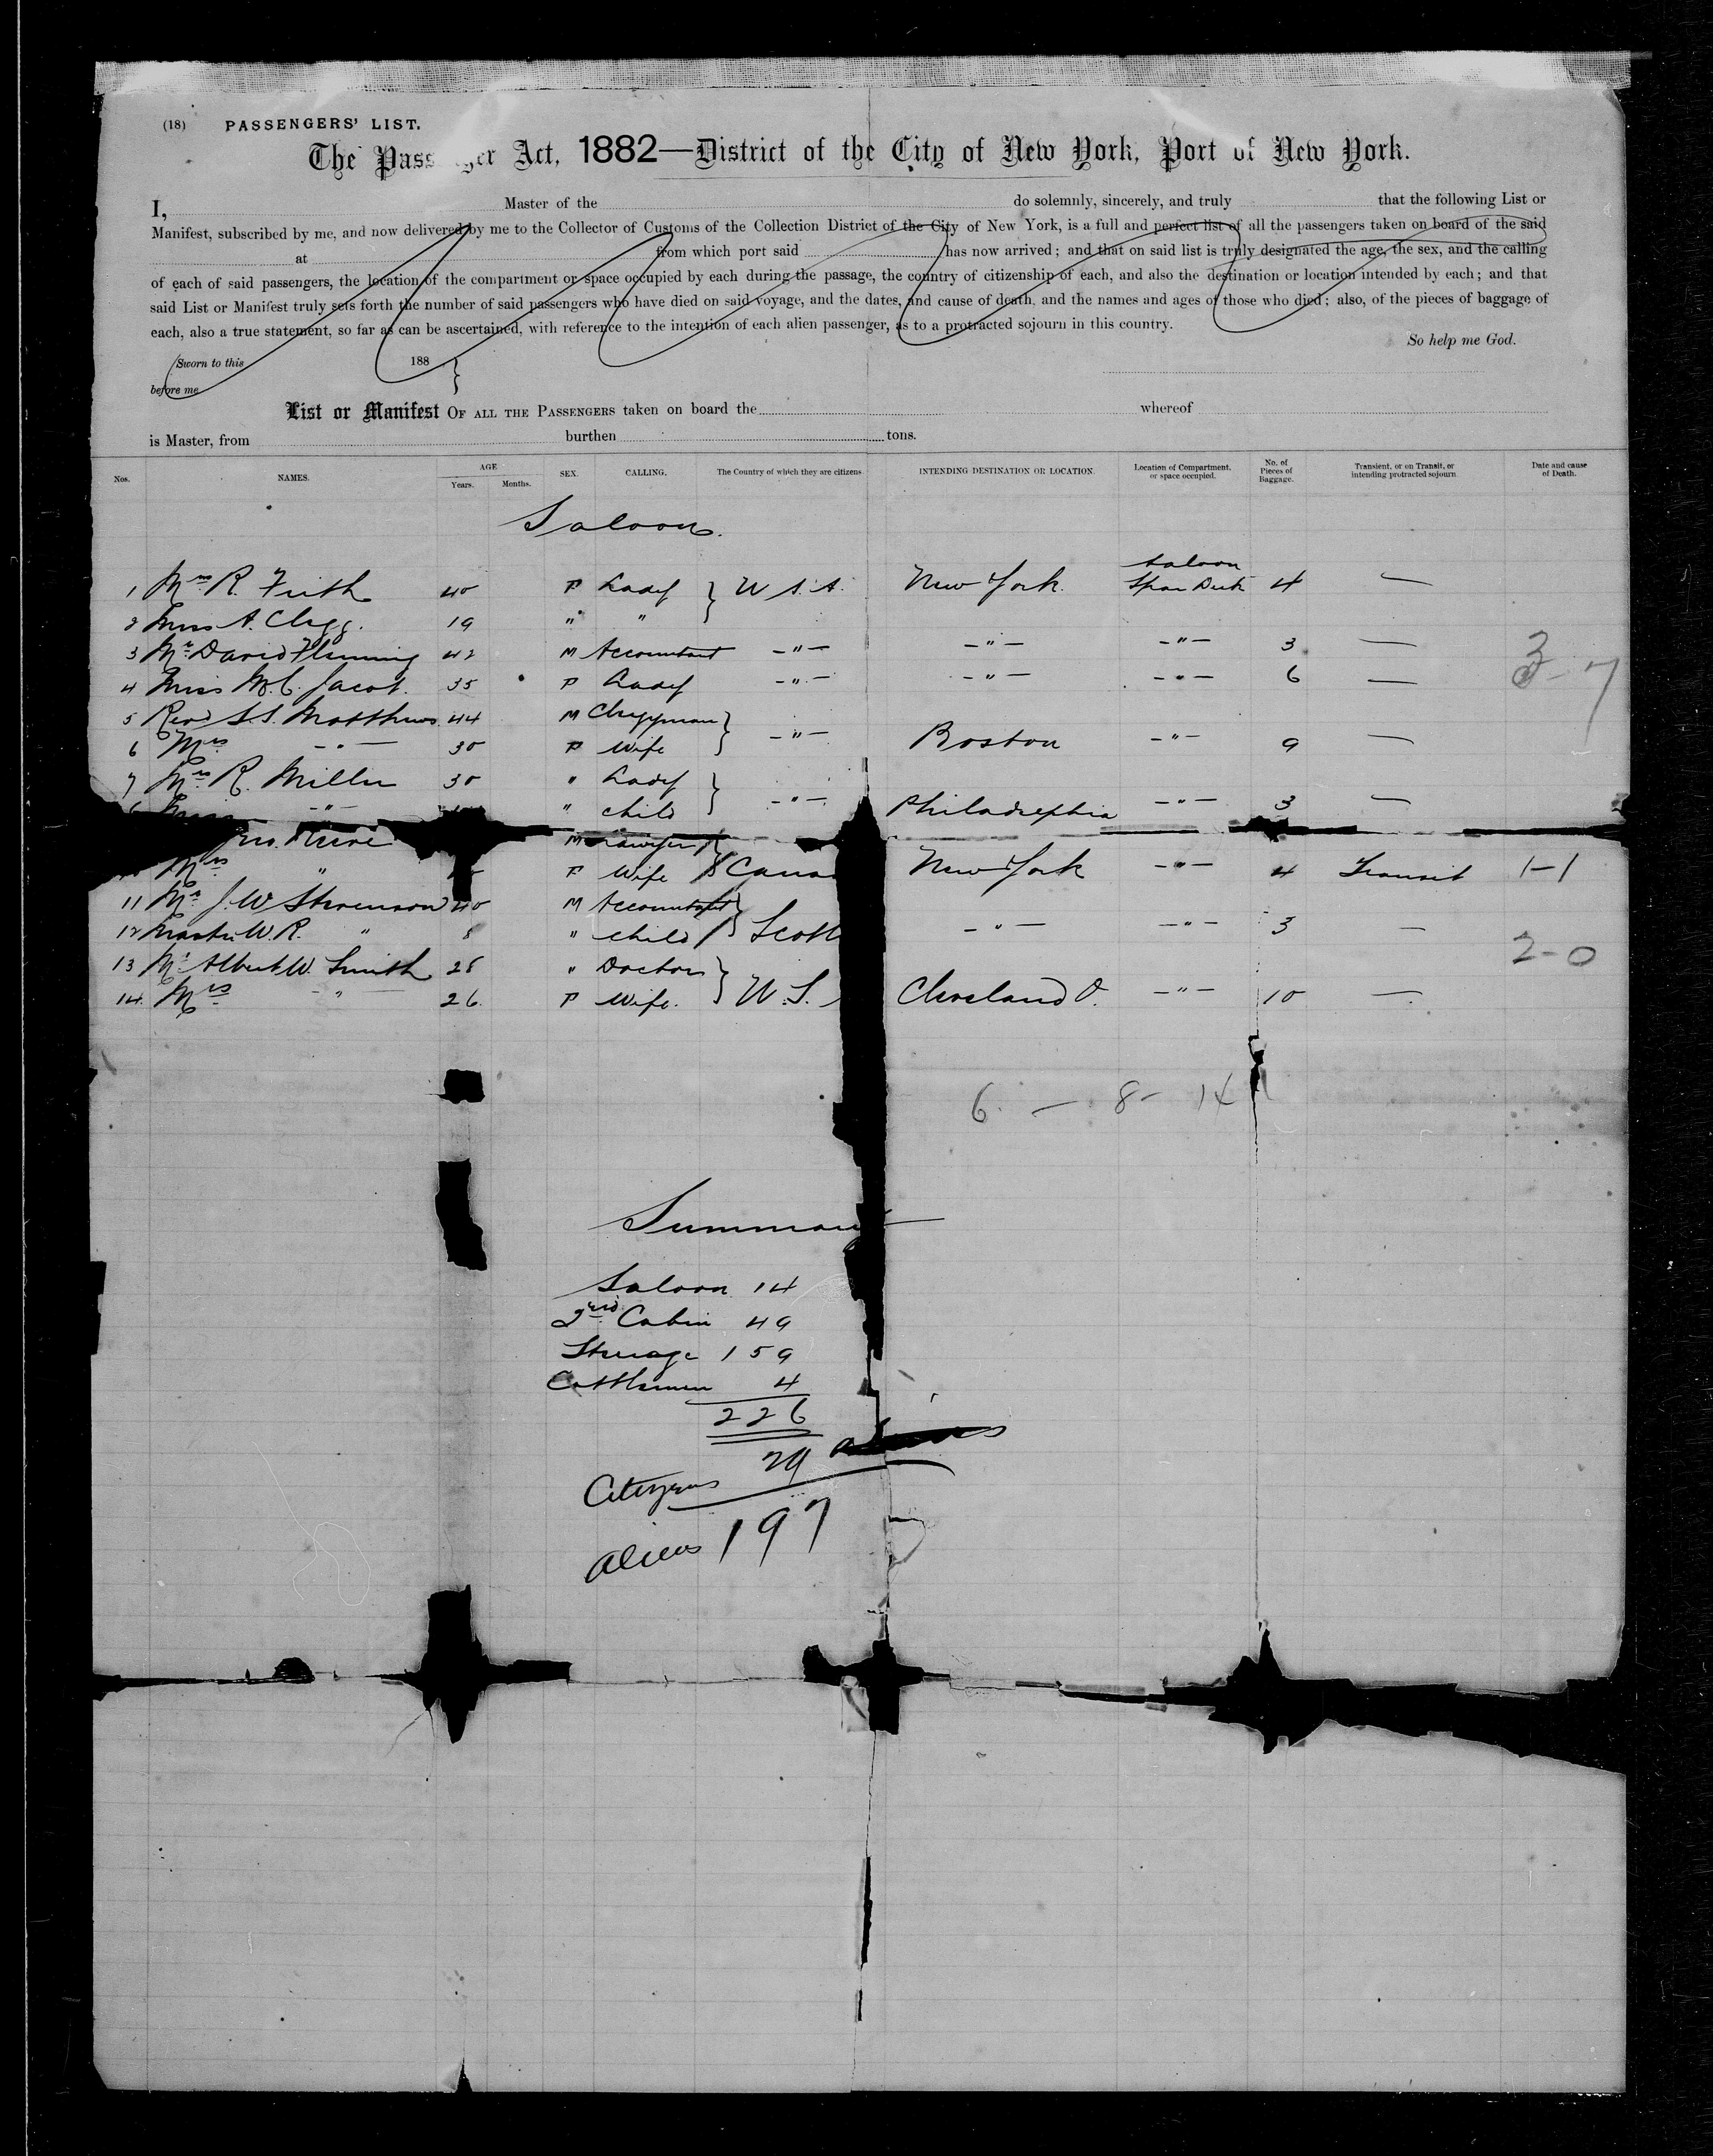 (18) PASSENGERS' LIST.
The Pass er Act, 1882—District of the City of New York, Port of New York.
I, Master of the do solemnly, sincerely, and truly that the following List or
Manifest, subscribed by me, and now delivered by me to the Collector of Customs of the Collection District of the City of New York, is a full and perfect list of all the passengers taken on board of the said
at from which port said has now arrived; and that on said list is truly designated the age, the sex, and the calling
of each of said passengers, the location of the compartment or space occupied by each during the passage, the country of citizenship of each, and also the destination or location intended by each; and that
said List or Manifest truly sets forth the number of said passengers who have died on said voyage, and the dates, and cause of death, and the names and ages of those who died; also, of the pieces of baggage of
each, also a true statement, so far as can be ascertained, with reference to the intention of each alien passenger, as to a protracted sojourn in this country.
So help me God.
Sworn to this 188
before me
List or Manifest OF ALL THE PASSENGERS taken on board the whereof
is Master, from burthen tons.
Nos. NAMES. AGE Years. Months. SEX. CALLING. The Country of which they are citizens. INTENDING DESTINATION OR LOCATION. Location of Compartment, or space occupied. No. of Pieces of Baggage. Transient, or on Transit, or intending protracted sojourn Date and cause of Death.
Saloon.
1 Mrs R. Frith 40 F Lady } U.S.A. New York. Saloon Spar Deck 4 —
2 Miss A. Clegg. 19 " "
3 Mr David Fleming 42 M Accountant —"— —"— —"— 3 — 3
4 Miss M.C. Jacot. 35 F Lady —"— —"— —"— 6 — -7
5 Revd S.S. Matthews 44 M Clergyman }
6 Mrs —"— 30 F Wife —"— Boston —"— 9 —
7 Mrs R. Miller 30 " Lady }
Miss —"— " child —"— Philadelphia —"— 3 —
M Lawyer }
Mrs " F Wife Cana New York —"— 4 Transit 1-1
11 Mr J.W. Stevenson 40 M Accountant }
12 Master W.R. " 8 " child Scotl —"— —"— 3 —
2-0
13 Mr Albert W. Smith 28 " Doctor }
14. Mrs " 26. F Wife. U.S. Cleveland O. —"— 10 —
6. — 8- 14
Summary
Saloon 14
2nd Cabin 49
Steerage 159
Cattlemen 4
226
Citizens 29
aliens 197